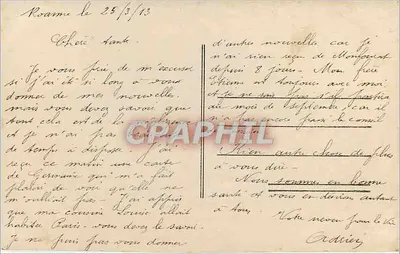 Roanne le 25/3/13
Chère tante
Je vous prie de m'excuser
si j'ai été si long à vous
donner de mes nouvelles
mais vous devez savoir que
tout cela est de la
et je n'ai pas
de temps à disposer J'ai
reçu ce matin une carte
de Germaine qui m'a fait
plaisir de voir qu'elle ne
m'oubliait pas. J'ai appris
que ma cousine Louise allait
habiter Paris. vous devez le savoir.
Je ne puis pas vous donner
d'autres nouvelles car je
n'ai rien reçu de
depuis 8 jours. Mon frère
Etienne est toujours avec moi
et je ne sais pas s'il partira
au mois de Septembre car il
n'a pas encore passé le conseil
Rien autre chose de plus
à vous dire.
Nous sommes en bonne
santé et vous en désirons autant
à tous.
Votre neveu pour la vie
CPAPHIL